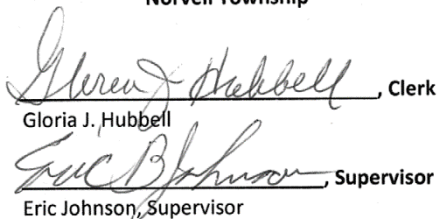 Norvell Township
Gloria J Hubbell, Clerk
Gloria J. Hubbell
Eric B Johnson, Supervisor
Eric Johnson, Supervisor